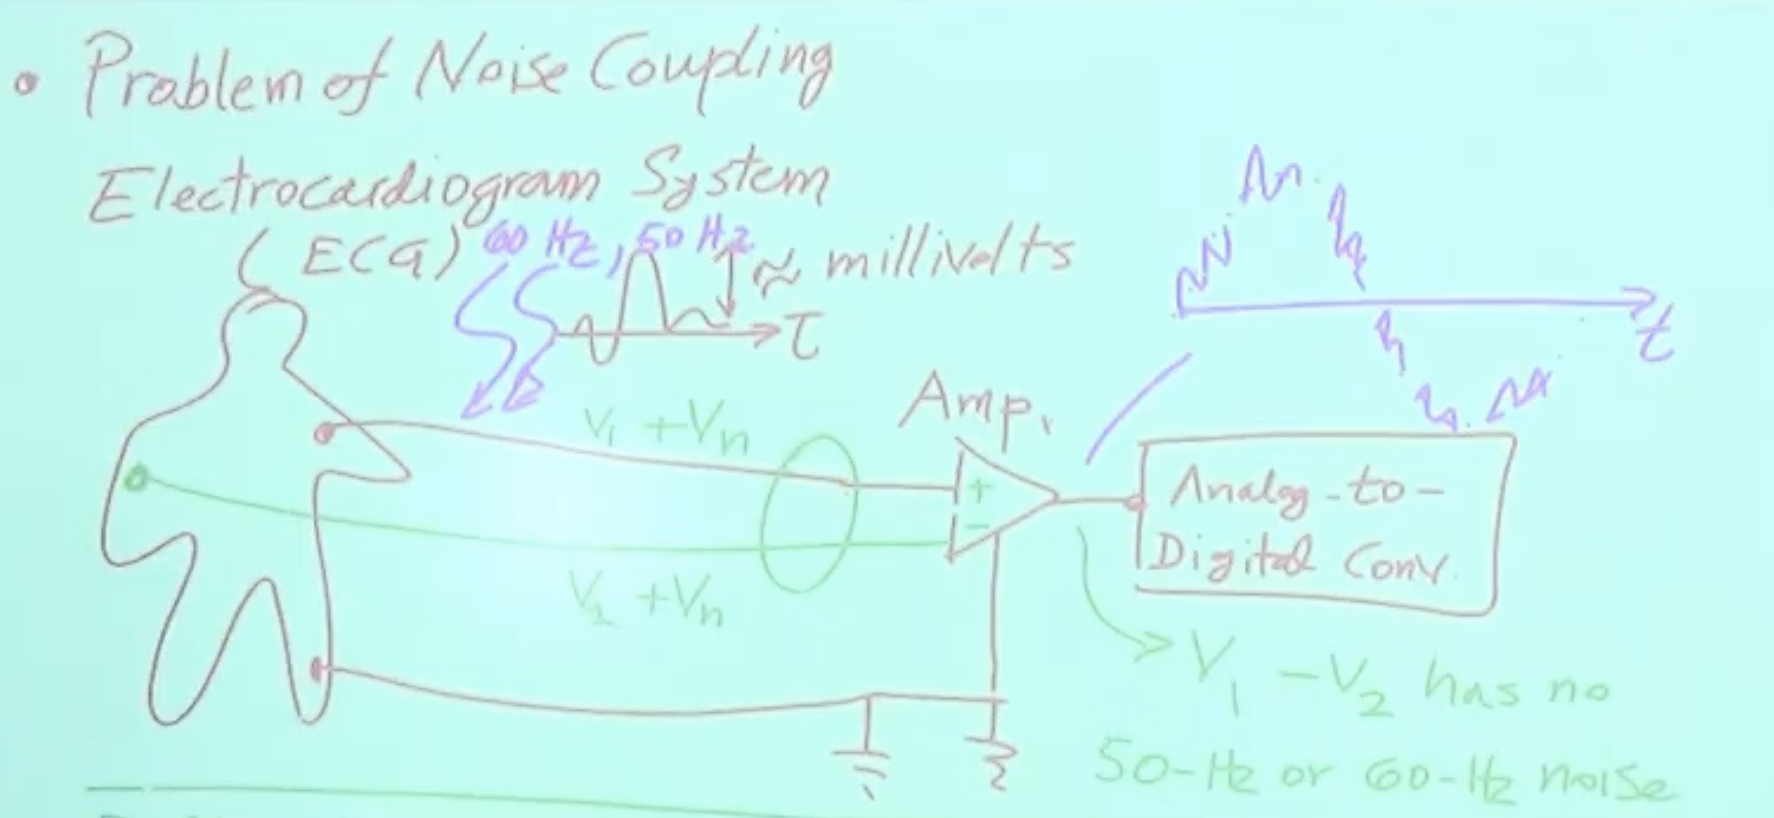 • Problem of Noise Coupling
Electrocardiogram System
(ECG) 60 Hz, 50 Hz
≈ millivolts
t
t
Amp.
V1 + Vn
+
-
V2 + Vn
Analog-to-
Digital Conv.
V1 - V2 has no
50-Hz or 60-Hz noise